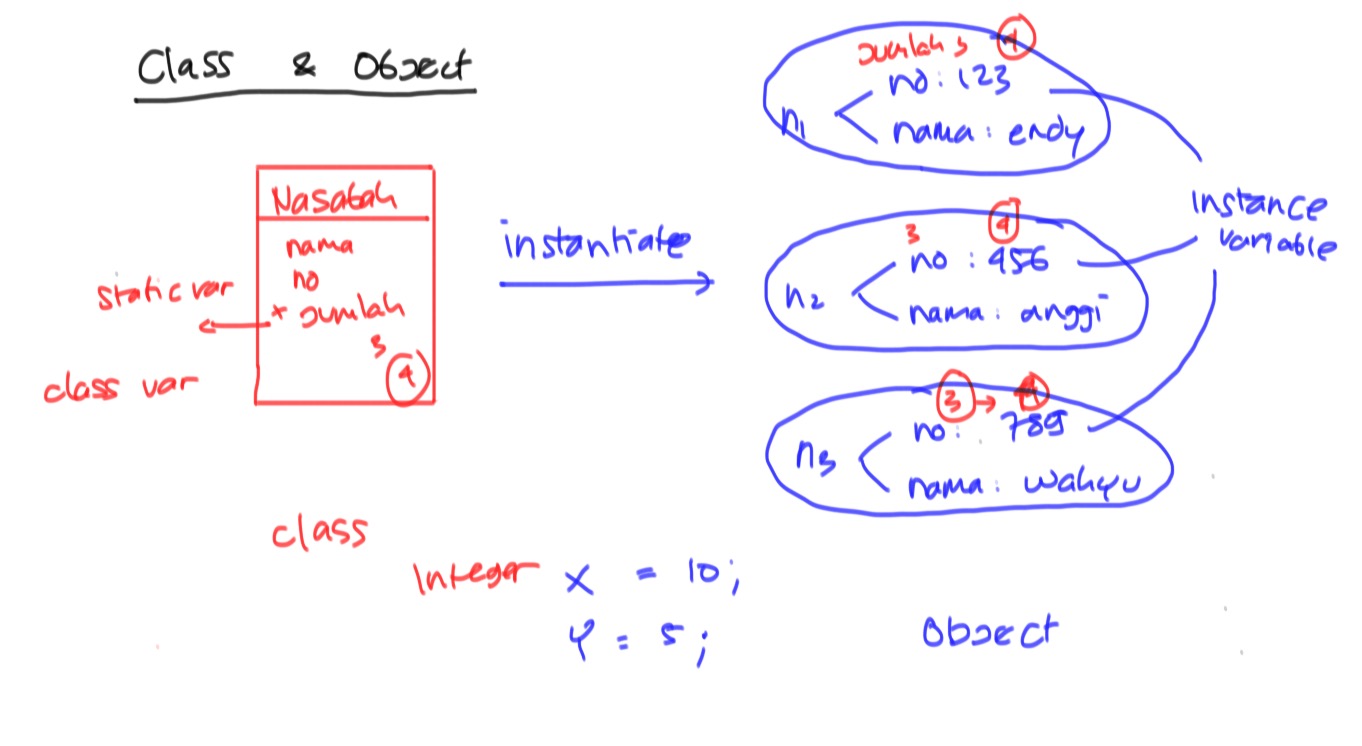 Class & Object
Nasabah
nama
no
+ Jumlah
3
4
static var
class var
class
instantiate
Jumlah 3 4
n1
no: 123
nama: endy
3 4
n2
no: 456
nama: anggi
3 → 4
n3
no: 789
nama: wahyu
instance
variable
Integer X = 10;
Y = 5;
Object